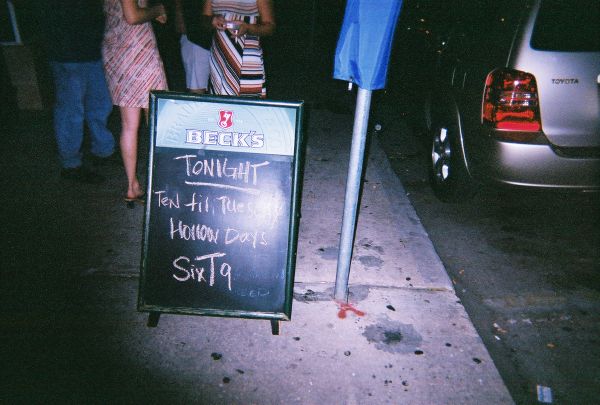 BECK'S
TONIGHT
Ten til Tuesday
Hollow Days
SixT9
TOYOTA